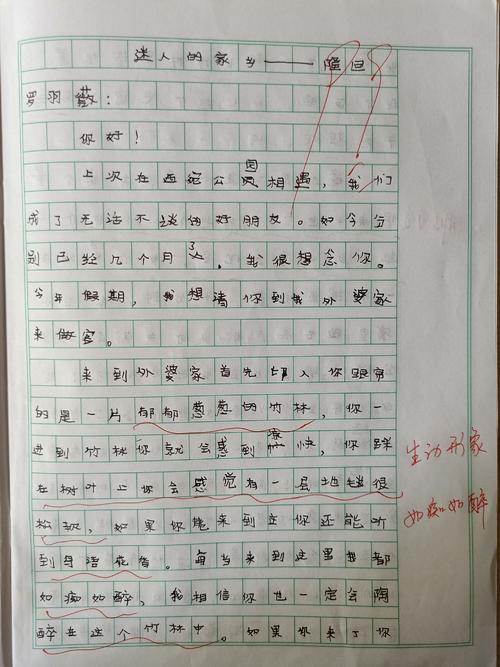 迷人的家乡——隆回
罗羽薇：
你好！
上次在西 公园相遇，我们
成了无话不谈的好朋友。如今分
别已经几个月了，我很想念你。
今年假期，我想请你到我外婆家
来做客。
来到外婆家首先切入你眼帘
的是一片郁郁葱葱的竹林，你一
进到竹林你就会感到凉快，你踩
在树叶上你会感觉有一层地毯很
松软，如果你 来到 你还能听
到鸟语花香。每当来到这里我都
如痴如醉，我相信你也一定会陶
醉在这个竹林中。如果你来了你
生动形象
如痴如醉